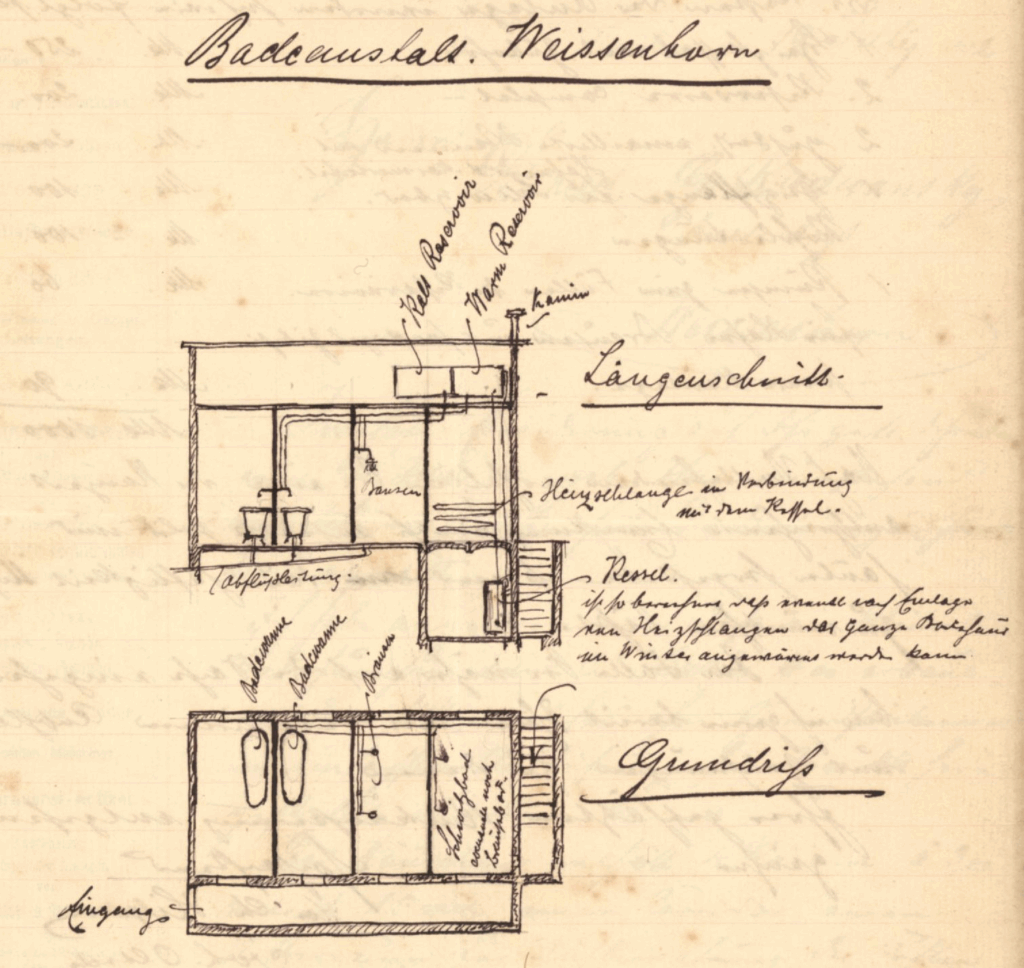 Badeanstalt. Weissenhorn
Kalt Reservoir
Warm Reservoir
Kamin
Längenschnitt.
Brausen
Heizschlange in Verbindung
mit dem Kessel.
Abflußleitung.
Kessel.
ist so berechnet daß eventl nach Einlage
von Heizschlangen das ganze Badehaus
im Winter angewärmt werden kann.
Badewanne
Badewanne
Brausen
Grundriß
Schwitzbad
noch
Eingang